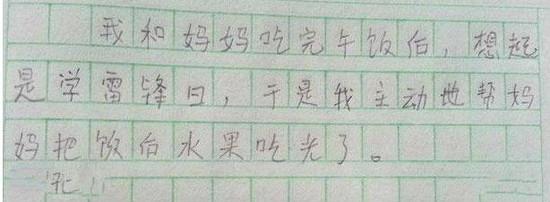 我和妈妈吃完午饭后,想起
是学雷锋日,于是我主动地帮妈
妈把饭后水果吃光了。